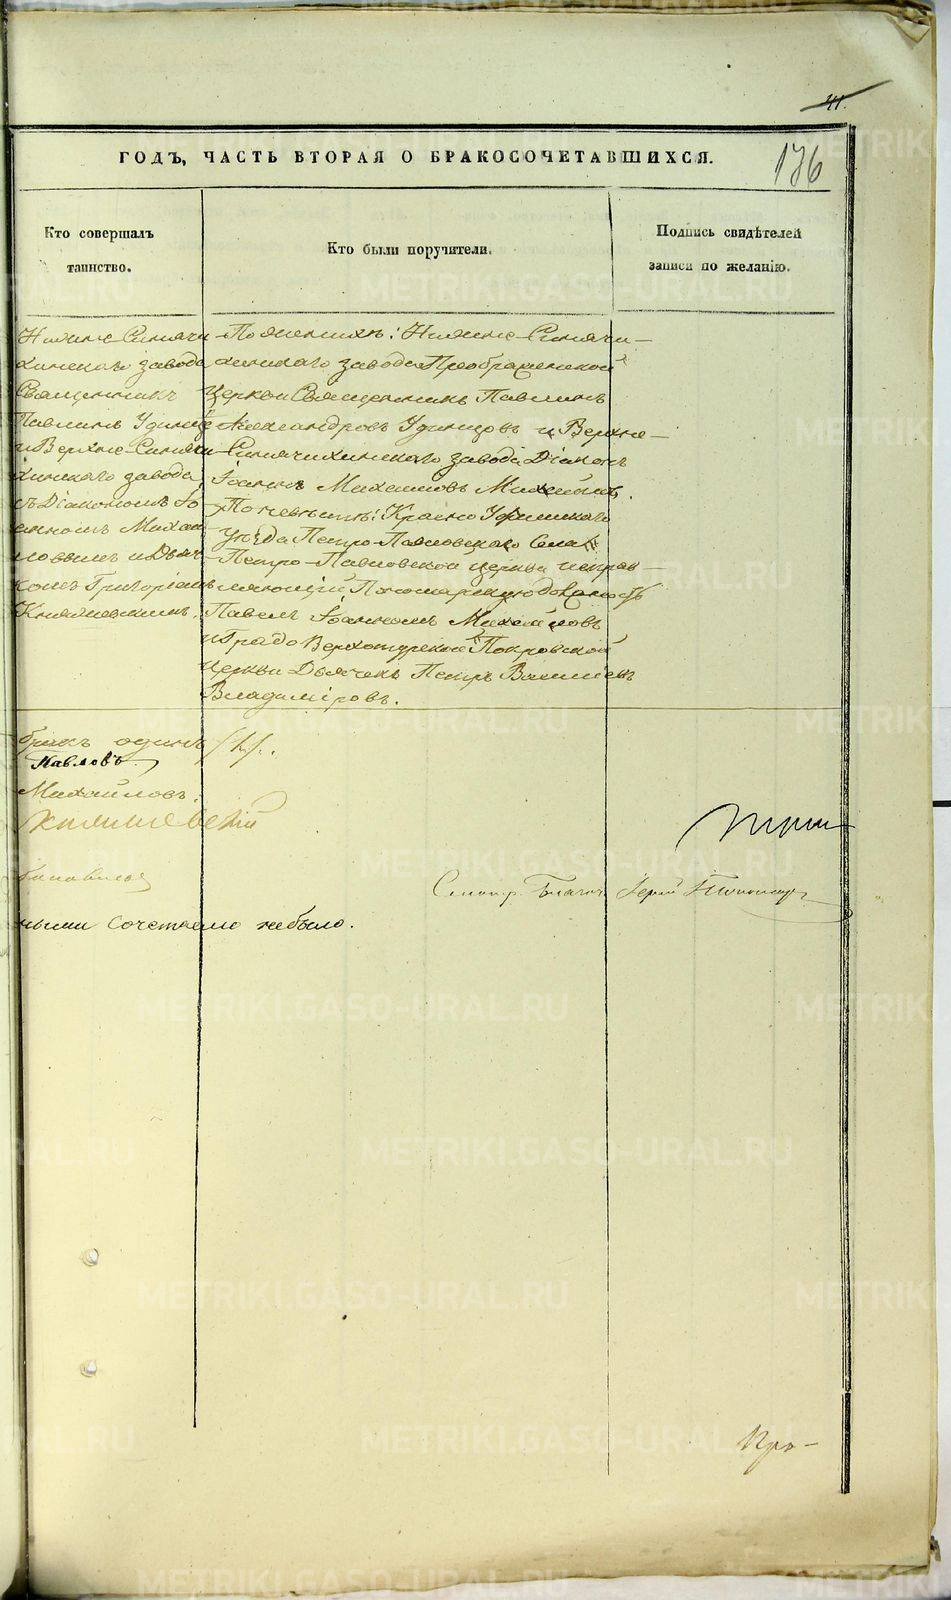 41.
ГОДЪ, ЧАСТЬ ВТОРАЯ О БРАКОСОЧЕТАВШИХСЯ.
176
Кто совершалъ
таинство.
Кто были поручители.
Подпись свидѣтелей
записи по желанію.
Нижне Синячи
хинскаго завода
Священникъ
Павлинъ Удинце
и Верхне-Синячи
хинскаго завода
съ Діакономъ Іо
анномъ Михаи
ловымъ и Дьяч
комъ Григоріемъ
Княжевскимъ.
По женихѣ: Нижне-Синячи-
хинскаго завода Преображенской
Церкви Священникъ Павлинъ
Александровъ Удинцовъ и Верхне-
Синячихинскаго завода Діаконъ
Іоаннъ Михаиловъ
По невѣстѣ: Красно Уфимскаго
уѣзда Петро-Павловскаго Села
Петро-Павловской церкви исправ-
ляющій Пономарскую должность
Павелъ
и Градо Верхотурской Покровской
Церкви Дьячекъ Петръ
Владиміровъ.
бракъ одинъ /1/.
Павловъ
Михайловъ.
Княжевскій
ными сочетаемо небыло.
METRIKI.GASO-URAL.RU